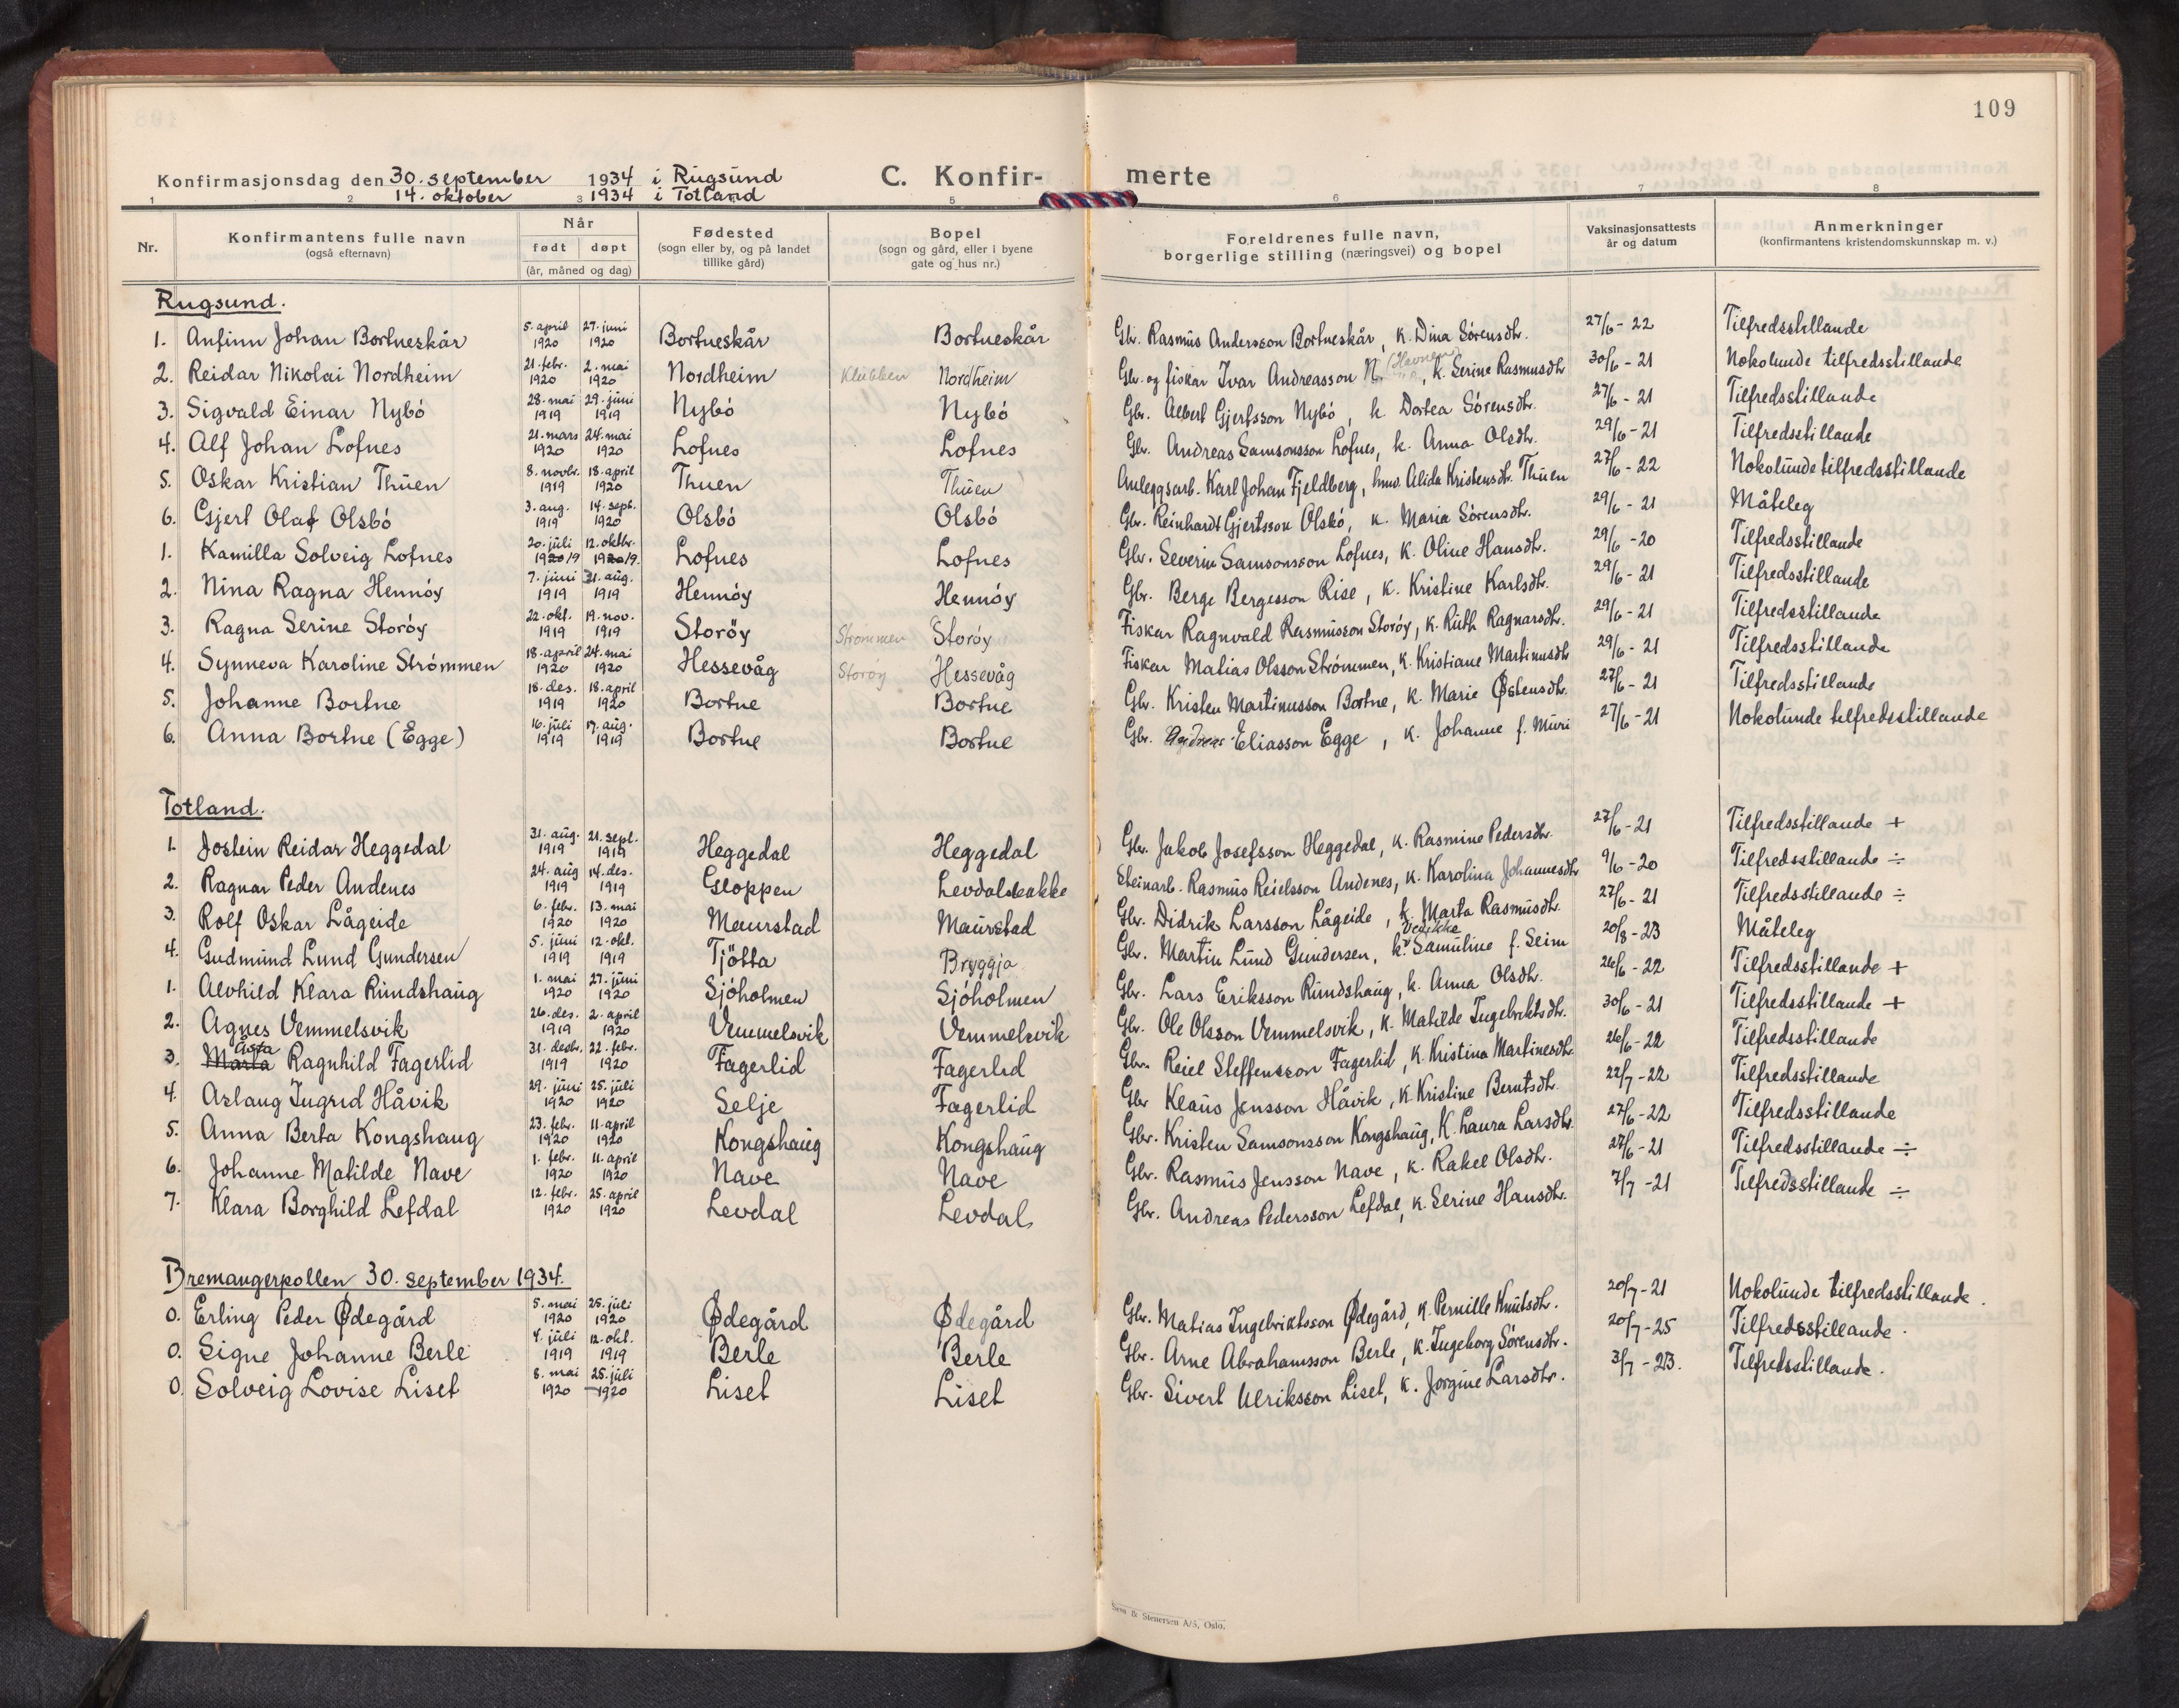 109
Konfirmasjonsdag den 30. september 1934 i Rugsund C. Konfir- merte
14. oktober 1934 i Totland
1 2 3 5 6 7 8
Nr. Konfirmantens fulle navn (også efternavn) Når født døpt (år, måned og dag) Fødested (sogn eller by, og på landet tillike gård) Bopel (sogn og gård, eller i byene gate og hus nr.) Foreldrenes fulle navn, borgerlige stilling (næringsvei) og bopel Vaksinasjonsattests år og datum Anmerkninger (konfirmantens kristendomskunnskap m. v.)
Rugsund.
1. Anfinn Johan Bortneskår 5. april 1920 27. juni 1920 Bortneskår Bortneskår Gbr. Rasmus Andersson Bortneskår, k. Dina Sørensdtr. 27/6 - 22 Tilfredsstillande
2. Reidar Nikolai Nordheim 21. febr. 1920 2. mai 1920 Nordheim Klubben Nordheim Gbr. og fiskar Ivar Andreasson N. (Havnen), k. Serine Rasmusdtr 30/6 - 21 Nokolunde tilfredsstillande
3. Sigvald Einar Nybó 28. mai 1919 29. juni 1919 Nybó Nybó Gbr. Albert Gjertsson Nybó, k. Dortea Sórensdtr. 27/6 - 21 Tilfredsstillande
4. Alf Johan Lofnes 21. mars 1920 24. mai 1920 Lofnes Lofnes Gbr. Andreas Samsonsson Lofnes, k. Anna Olsdtr. 29/6 - 21 Tilfredsstillande
5. Oskar Kristian Thuen 8. novbr. 1919 18. april 1920 Thuen Thuen Anleggsarb. Karl Johan Fjeldberg, hmo. Alida Kristensdtr. Thuen 27/6 - 22 Nokolunde tilfredsstillande
6. Gjert Olaf Olsbó 3. aug. 1919 14. sept. 1920 Olsbó Olsbó Gbr. Reinhardt Gjertsson Olsbó, k. Maria Sórensdtr. 29/6 - 21 Måteleg
1. Kamilla Solveig Lofnes 20. juli 1920/9 12. oktbr. 1920/9. Lofnes Lofnes Gbr. Severin Samsonsson Lofnes, k. Oline Hansdtr. 29/6 - 20 Tilfredsstillande
2. Nina Ragna Hennóy 7. juni 1919 31. aug. 1919 Hennóy Hennóy Gbr. Berge Bergesson Rise, k. Kristine Karlsdtr. 29/6 - 21 Tilfredsstillande
3. Ragna Serine Storóy 22. okt. 1919 19. nov. 1919 Storöy Strømmen Storóy Fiskar Ragnvald Rasmusson Storóy, k. Ruth Ragnarsdtr. 29/6 - 21 Tilfredsstillande
4. Synneva Karoline Strómmen 18. april 1920 24. mai 1920 Hessevåg Storøy Hessevåg Fiskar Matias Olsson Strómmen, k. Kristiane Martinusdtr 29/6 - 21 Tilfredsstillande
5. Johanne Bortne 18. des. 1919 18. april 1920 Bortne Bortne Gbr. Kristen Martinusson Bortne, k. Marie Østensdtr. 27/6 - 21 Tilfredsstillande
6. Anna Bortne (Egge) 16. juli 1919 17. aug. 1919 Bortne Bortne Gbr. Andreas Eliasson Egge, k. Johanne f. Muri 27/6 - 21 Nokolunde tilfredsstillande
Totland.
1. Jostein Reidar Heggedal 31. aug. 1919 21. sept. 1919 Heggedal Heggedal Gbr. Jakob Josefsson Heggedal, k. Rasmine Pedersdtr. 27/6 - 21 Tilfredsstillande +
2. Ragnar Peder Andenes 24. aug 1919 14. des. 1919 Gloppen Levdalsbakke Steinarb. Rasmus Reielsson Andenes, k. Karolina Johannesdtr 9/6 - 20 Tilfredsstillande ÷
3. Rolf Oskar Lågeide 6. febr. 1920 13. mai 1920 Maurstad Maurstad Gbr. Didrik Larsson Lågeide, k. Marta Rasmusdtr. 27/6 - 21 Tilfredsstillande ÷
4. Gudmund Lund Gundersen 5. juni 1919 12. okt. 1919 Tjötta Bryggja Gbr. Martin Lund Gundersen, k. Samuline f. Seim 20/8 - 23 Måteleg
1. Alvhild Klara Rundshaug 1. mai 1920 27. juni 1920 Sjóholmen Sjóholmen Gbr. Lars Eriksson Rundshaug, k. Anna Olsdtr. 26/6 - 22 Tilfredsstillande +
2. Agnes Vemmelsvik 26. des. 1919 2. april 1920 Vemmelsvik Vemmelsvik Gbr. Ole Olsson Vemmelsvik, k. Matilde Ingebriktsdtr. 30/6 - 21 Tilfredsstillande +
3. Marta Åsta Ragnhild Fagerlid 31. desbr. 1919 22. febr. 1920 Fagerlid Fagerlid Gbr. Reiel Steffensson Fagerlid, k. Kristina Martinesdtr. 26/6 - 22 Tilfredsstillande
4. Aslaug Ingrid Håvik 29. juni 1920 25. juli 1920 Selje Fagerlid Gbr Klaus Jensson Håvik, k. Kristine Berntsdtr. 22/7 - 22 Tilfredsstillande
5. Anna Berta Kongshaug 23. febr. 1920 11. april 1920 Kongshaug Kongshaug Gbr. Kristen Samsonsson Kongshaug, k. Laura Larsdtr. 27/6 - 22 Tilfredsstillande
6. Johanne Matilde Nave 1. febr. 1920 11. april 1920 Nave Nave Gbr. Rasmus Jensson Nave, k. Rakel Olsdtr. 27/6 - 21 Tilfredsstillande ÷
7. Klara Borghild Lefdal 12. febr. 1920 25. april 1920 Levdal Levdal Gbr. Andreas Pedersson Lefdal, k. Serine Hansdtr. 7/7 - 21 Tilfredsstillande ÷
Bremangerpollen 30. september 1934.
0. Erling Peder Ødegård 5. mai 1920 25. juli 1920 Ødegård Ødegård Gbr. Matias Ingebriktsson Ødegård, k. Pernille Knutsdtr. 20/7 - 21 Nokolunde tilfredsstillande.
0. Signe Johanne Berle 4. juli 1919 12. okt. 1919 Berle Berle Gbr. Arne Abrahamsson Berle, k. Ingeborg Sørensdtr. 20/7 - 25 Tilfredsstillande.
0. Solveig Lovise Liset 8. mai 1920 25. juli 1920 Liset Liset Gbr. Sivert Ulriksson Liset, k. Jørgine Larsdtr. 3/7 - 23. Tilfredsstillande.
Sem & Stenersen A/S, Oslo.